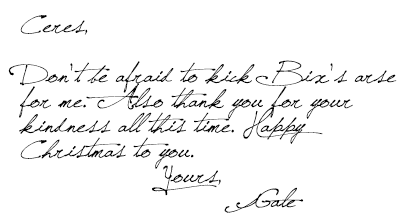 Ceres,
Don't be afraid to kick Bix's arse
for me. Also thank you for your
kindness all this time. Happy
Christmas to you.
Yours,
Gale